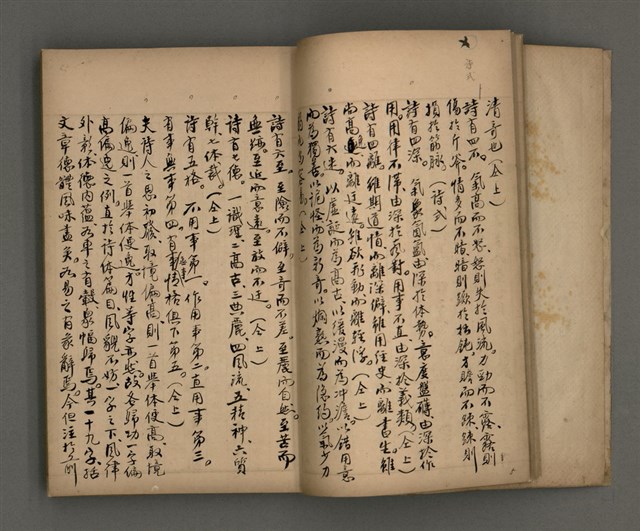 清奇也（仝上）
詩有四不。氣高而不怒、怒則失於風流。力勁而不露、露則
傷於斤斧。情多而不暗、暗則蹶於拙鈍。才贍而不疎、疎則
損於筋脈。（詩式）
詩有四深。氣象氤氳由深於体勢。意度盤礴由深於作
用。用律不滯由深於聲對。用事不直由深於義類（仝上）
詩有四離。雖期道情而離深僻。雖用経史而離書生。雖
尚高逸而離迂遠。雖欲飛動而離輕浮。（仝上）
詩有六迷。以虛誕而為高古。以緩漫而為冲澹。以錯用意
而為獨善。以詭怪而為新奇。以爛熟而為穩約。以氣少力
詩有六至。至險而不僻。至奇而不差。至麗而自然。至苦而
無跡。至近而意遠。至放而不迂。（仝上）
詩有七德。一識理。二高古。三典麗。四風流。五精神。六質
幹。七体裁。（仝上）
詩有五格。不用事第一。作用事第二。直用事第三。
有事無事第四。有事情格俱下第五。（仝上）
夫詩人之思初發、取境偏高、則一首舉体便高、取境
偏逸、則一首舉体便逸。才性等字亦然。故各歸功一字。偏
高偏逸之例、直於詩体篇目風貌。不妨一字之下、風律
外彰、体德内蘊、如車之有轂、衆輻歸焉。其一十九字、括
文章德體風味盡矣。如易之有彖辭焉。今但注於前